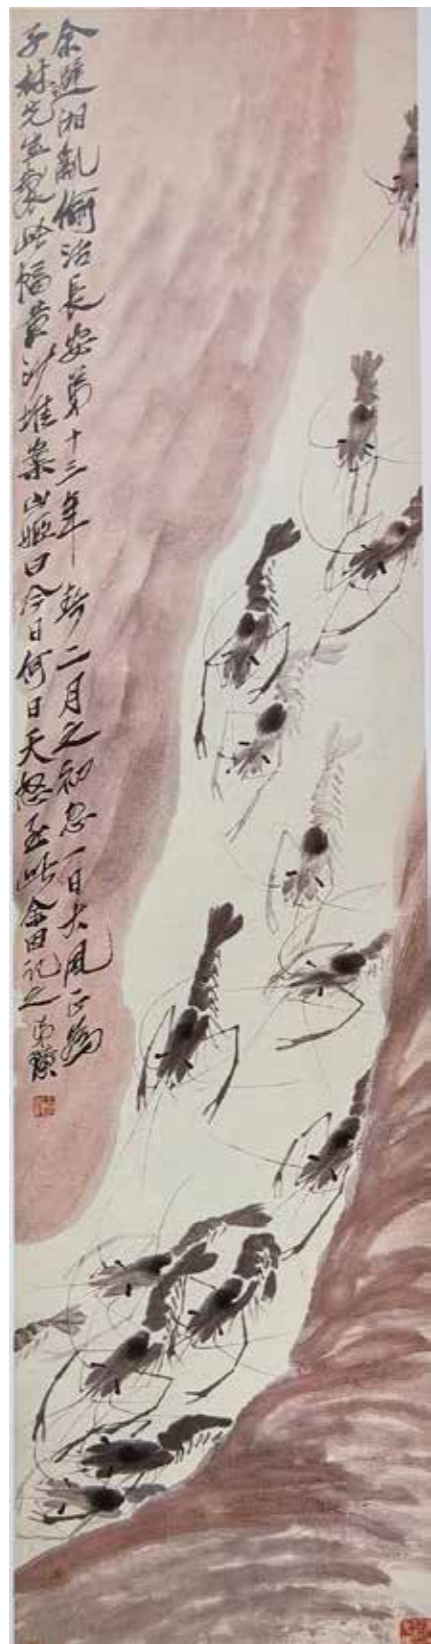 余避湘亂偷活長安第十三年春二月之初忽一日大風正為
子林先生製此幅黃沙堆案山姬曰今日何日天怒至此余因記之 弟璜